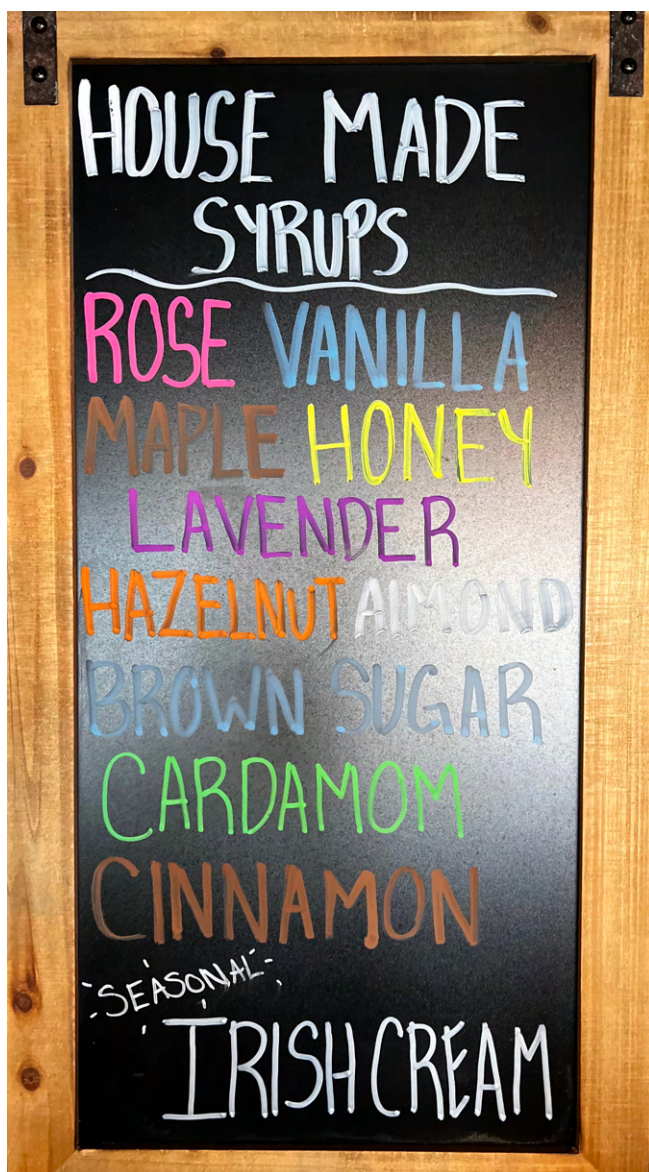 HOUSE MADE
SYRUPS
ROSE VANILLA
MAPLE HONEY
LAVENDER
HAZELNUT ALMOND
BROWN SUGAR
CARDAMOM
CINNAMON
SEASONAL
IRISH CREAM